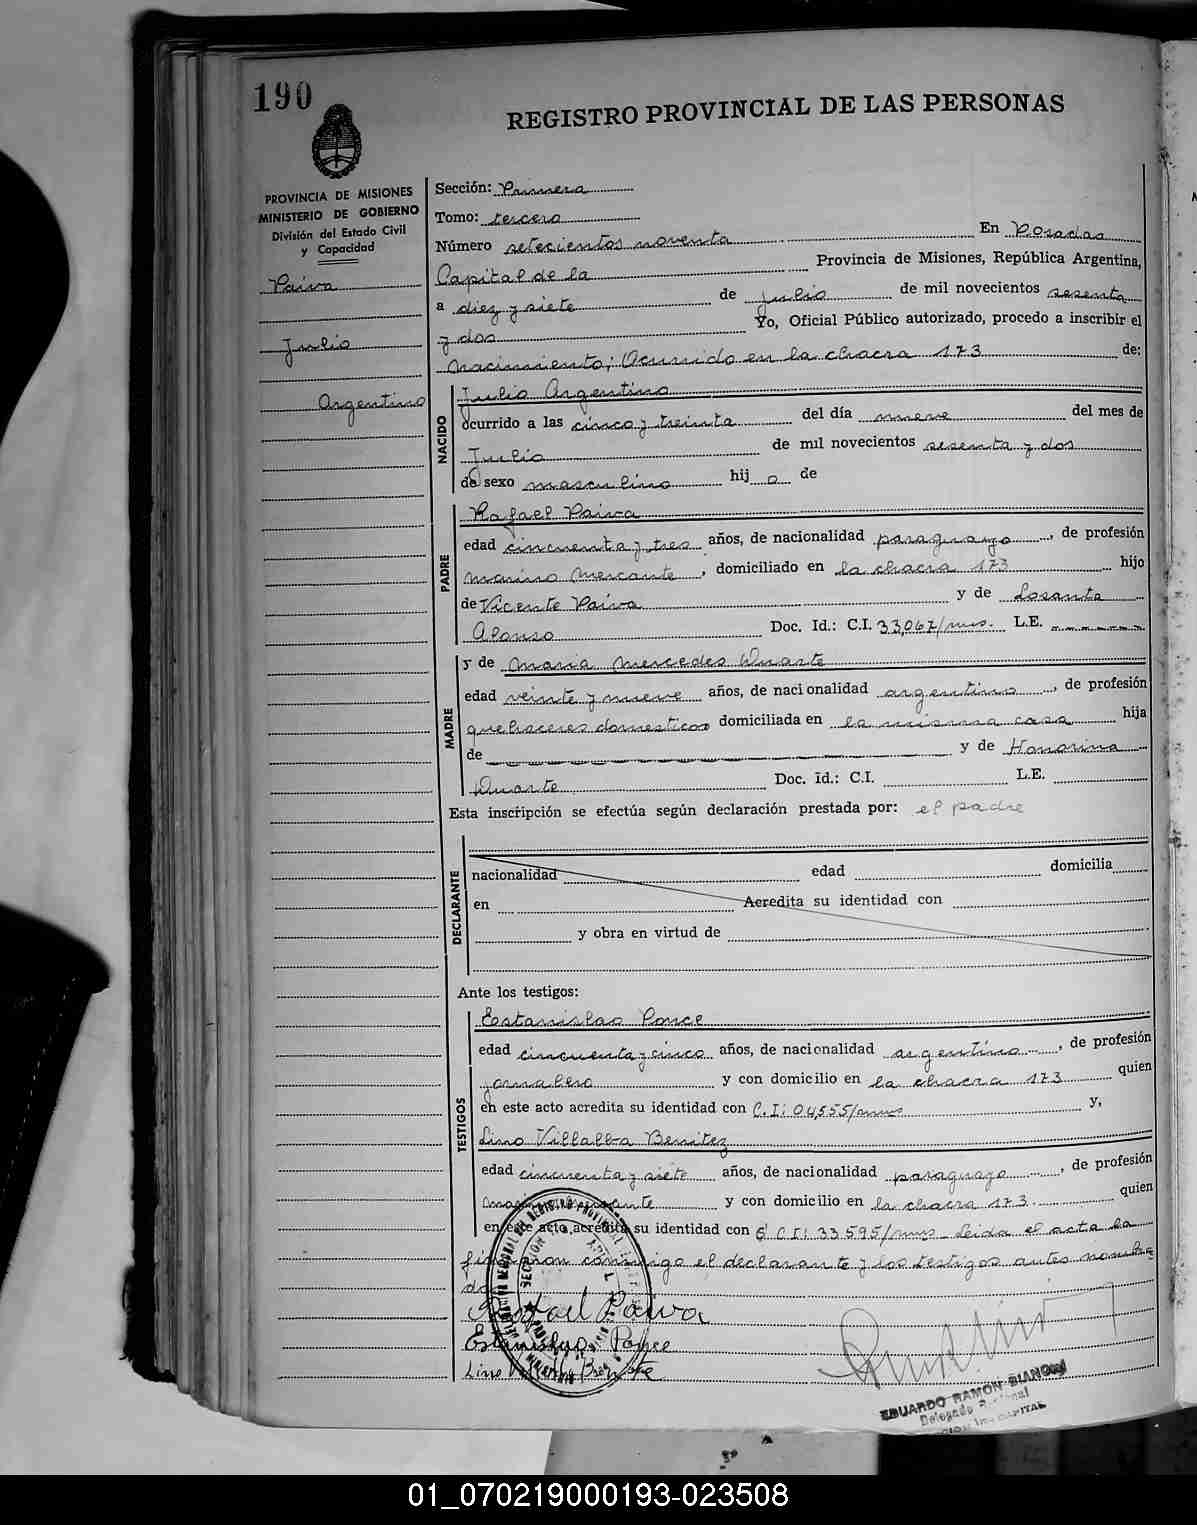 190
REGISTRO PROVINCIAL DE LAS PERSONAS
PROVINCIA DE MISIONES
MINISTERIO DE GOBIERNO
División del Estado Civil
y Capacidad
Paiva
Julio
Argentino
Sección: Primera
Tomo: tercero
Número setecientos noventa En Posadas
Capital de la Provincia de Misiones, República Argentina,
a diez y siete de julio de mil novecientos sesenta
y dos Yo, Oficial Público autorizado, procedo a inscribir el
Nacimiento; Ocurrido en la chacra 173 de:
NACIDO
Julio Argentino
ocurrido a las cinco y treinta del día nueve del mes de
Julio de mil novecientos sesenta y dos
de sexo masculino hij o de
PADRE
Rafael Paiva
edad cincuenta y tres años, de nacionalidad paraguayo, de profesión
marino mercante, domiciliado en la chacra 173 hijo
de Vicente Paiva y de Losanta
Alonso Doc. Id.: C.I. 33,067/mns. L.E.
MADRE
y de Maria Mercedes Duarte
edad veinte y nueve años, de nacionalidad argentina, de profesión
quehaceres domesticos domiciliada en la misma casa hija
de y de Honorina
Duarte Doc. Id.: C.I. L.E.
Esta inscripción se efectúa según declaración prestada por: el padre
DECLARANTE
nacionalidad edad domicilia
en Acredita su identidad con
y obra en virtud de
Ante los testigos:
TESTIGOS
Estanislao Ponce
edad cincuenta y cinco años, de nacionalidad argentino, de profesión
jornalero y con domicilio en la chacra 173 quien
en este acto acredita su identidad con C.I: 04,555/mns y,
Lino Villalba Benitez
edad cincuenta y siete años, de nacionalidad paraguayo, de profesión
marino mercante y con domicilio en la chacra 173 quien
en este acto acredita su identidad con C.I: 33 595/mns Leida el acta la
firmaron conmigo el declarante y los testigos antes nombra
dos
Rafael Paiva
Estanislao Ponce
Lino Villalba
EDUARDO RAMON BIANCHI
Delegado
CAPITAL
01_070219000193-023508